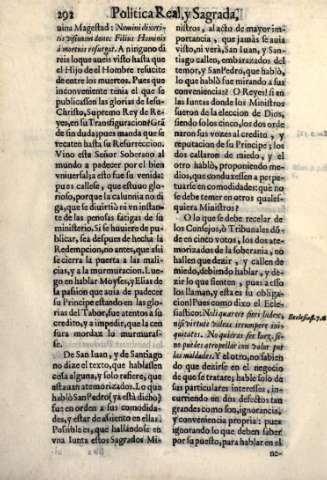 292 Politica Real, y Sagrada,
uina Magestad: Nemini dixeri-
tis visionem donec Filius Hominis
à mortuis resurgat. A ninguno di
reis lo que aueis visto hasta que
el Hijo de el Hombre resucite
de entre los muertos. Pues que
inconueniente tenia el que se
publicassen las glorias de Iesu-
Christo, Supremo Rey de Re-
yes, en su Transfiguracion? Grã
de sin duda; pues manda que se
recaten hasta su Resurreccion.
Vino esta Señor Soberano al
mundo a padecer por el bien
vniuersal; a esto fue su venida:
pues callese, que estuuo glo-
rioso, porque la calumnia no di
ga, que se diuirtiò ni vn instan-
te de las penosas fatigas de su
ministerio. Si se huuiere de pu-
blicar, sea despues de hecha la
Redempcion, no antes, que assi
se cierra la puerta a las mali-
cias, y a la murmuracion. Lue-
go en hablar Moyses, y Elias de
la passion que auia de padecer
su Principe estando en las glo-
rias del Tabor, fue atentos a su
credito, y a impedir, que la cen
sura mordaz la murmuras-
se.
De San Iuan, y de Santiago
no dize el texto, que hablassen
cosa alguna, y solo refiere, que
estauan atemorizados. Lo que
hablò San Pedro (ya està dicho)
fue en orden a sus comodida-
des, y estar de assiento en ellas.
Possible es, que hallandose en
vna Iunta estos Sagrados Mi-
nistros, al acto de mayor im-
portancia, que jamàs se auia
visto, ni verà, San Iuan, y San-
tiago callen, embarazados del
temor, y San Pedro, que hablò,
lo que hablò fue mirando a sus
conveniencias? O Reyes! si en
las Iuntas donde los Ministros
fueron de la eleccion de Dios,
siendo solos cinco, los dos orde
naron sus vozes al credito, y
reputacion de su Principe; los
dos callaron de miedo, y el
otro hablò, proponiendo me-
dios, que conduxessen a perpe-
tuarse en comodidades: què no
se debe temer en otros quales-
quiera Ministros?
O lo que se debe recelar de
los Consejos, ò Tribunales dõ-
de en cinco votos, los dos ate-
morizados de la soberania, no
hallen que dezir, y callen de
miedo, debiendo hablar, y de-
zir lo que sienten, pues a esso
los llaman, y esta es su obliga-
cion! Pues como dixo el Ecle-
siastico: Noli quærere fieri Iudex,
nisi virtute valeas irrumpere ini-
quitates. No quieras ser Iuez, si
no puedes atropellar con valor por
las maldades. Y el otro, no sabien
do que dezirse en el negocio
de que se trataba; hable solo de
sus particulares intereses, in-
curriendo en dos defectos tan
grandes como son, ignorancia,
y conveniencia propria: pues
ignorando lo que deben saber
por su puesto, para hablar en el
ne-